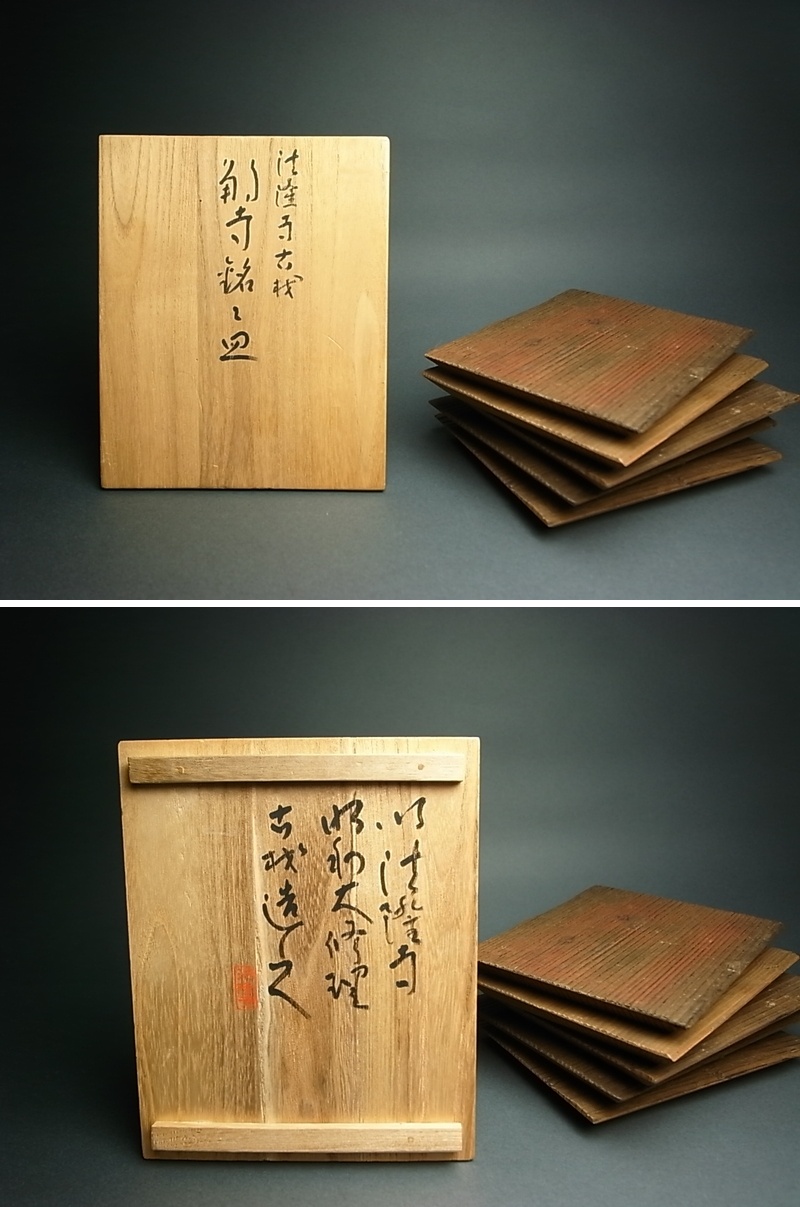 法隆寺古材
斑寺銘々皿
以法隆寺
昭和大修理
古材造之